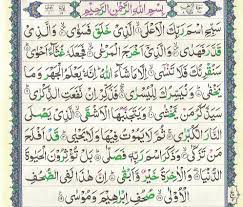 بِسْمِ اللهِ الرَّحْمٰنِ الرَّحِيْمِ
سَبِّحِ اسْمَ رَبِّكَ الْاَعْلَى الَّذِيْ خَلَقَ فَسَوّٰى وَالَّذِيْ
قَدَّرَ فَهَدٰى وَالَّذِيْ اَخْرَجَ الْمَرْعٰى فَجَعَلَهٗ غُثَآءً اَحْوٰى
سَنُقْرِئُكَ فَلَا تَنْسٰى اِلَّا مَا شَآءَ اللهُ اِنَّهٗ يَعْلَمُ الْجَهْرَ وَمَا
يَخْفٰى وَنُيَسِّرُكَ لِلْيُسْرٰى فَذَكِّرْ اِنْ نَّفَعَتِ الذِّكْرٰى
سَيَذَّكَّرُ مَنْ يَّخْشٰى وَيَتَجَنَّبُهَا الْاَشْقَى الَّذِيْ يَصْلَى
النَّارَ الْكُبْرٰى ثُمَّ لَا يَمُوْتُ فِيْهَا وَلَا يَحْيٰى قَدْ اَفْلَحَ
مَنْ تَزَكّٰى وَذَكَرَ اسْمَ رَبِّهٖ فَصَلّٰى بَلْ تُؤْثِرُوْنَ الْحَيٰوةَ
الدُّنْيَا وَالْاٰخِرَةُ خَيْرٌ وَّاَبْقٰى اِنَّ هٰذَا لَفِي الصُّحُفِ
الْاُوْلٰى صُحُفِ اِبْرٰهِيْمَ وَمُوْسٰى